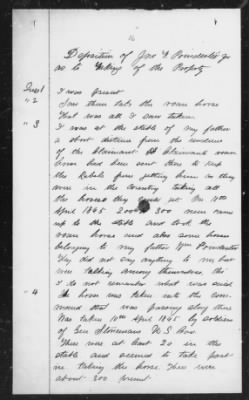 Deposition of Jno F Poindexter Jr
as to taking of the Property
Quest 1 I was present
" 2 I saw them take the roan horse
That was all I saw taken
" 3 I was at the stable of my father
a short distance from the residence
of the Claimant. Claimants roan
horse had been sent there to keep
the Rebels from getting him as they
were in the country taking all
the horses they could get. On 10th
April 1865 200 or 300 men came
up to the stable and took the
roan horse and also some horses
belonging to my father Wm Poindexter
They did not say anything to me but
were talking among themselves, tho
I do not remember what was said
" 4 The horse was taken out the com-
mand that was passing along then
Was taken 10th April 1865 by soldiers
of Gen Stonemans U S Army
There were at least 20 in the
stable and seemed to take part
in taking the horse. There were
about 300 present